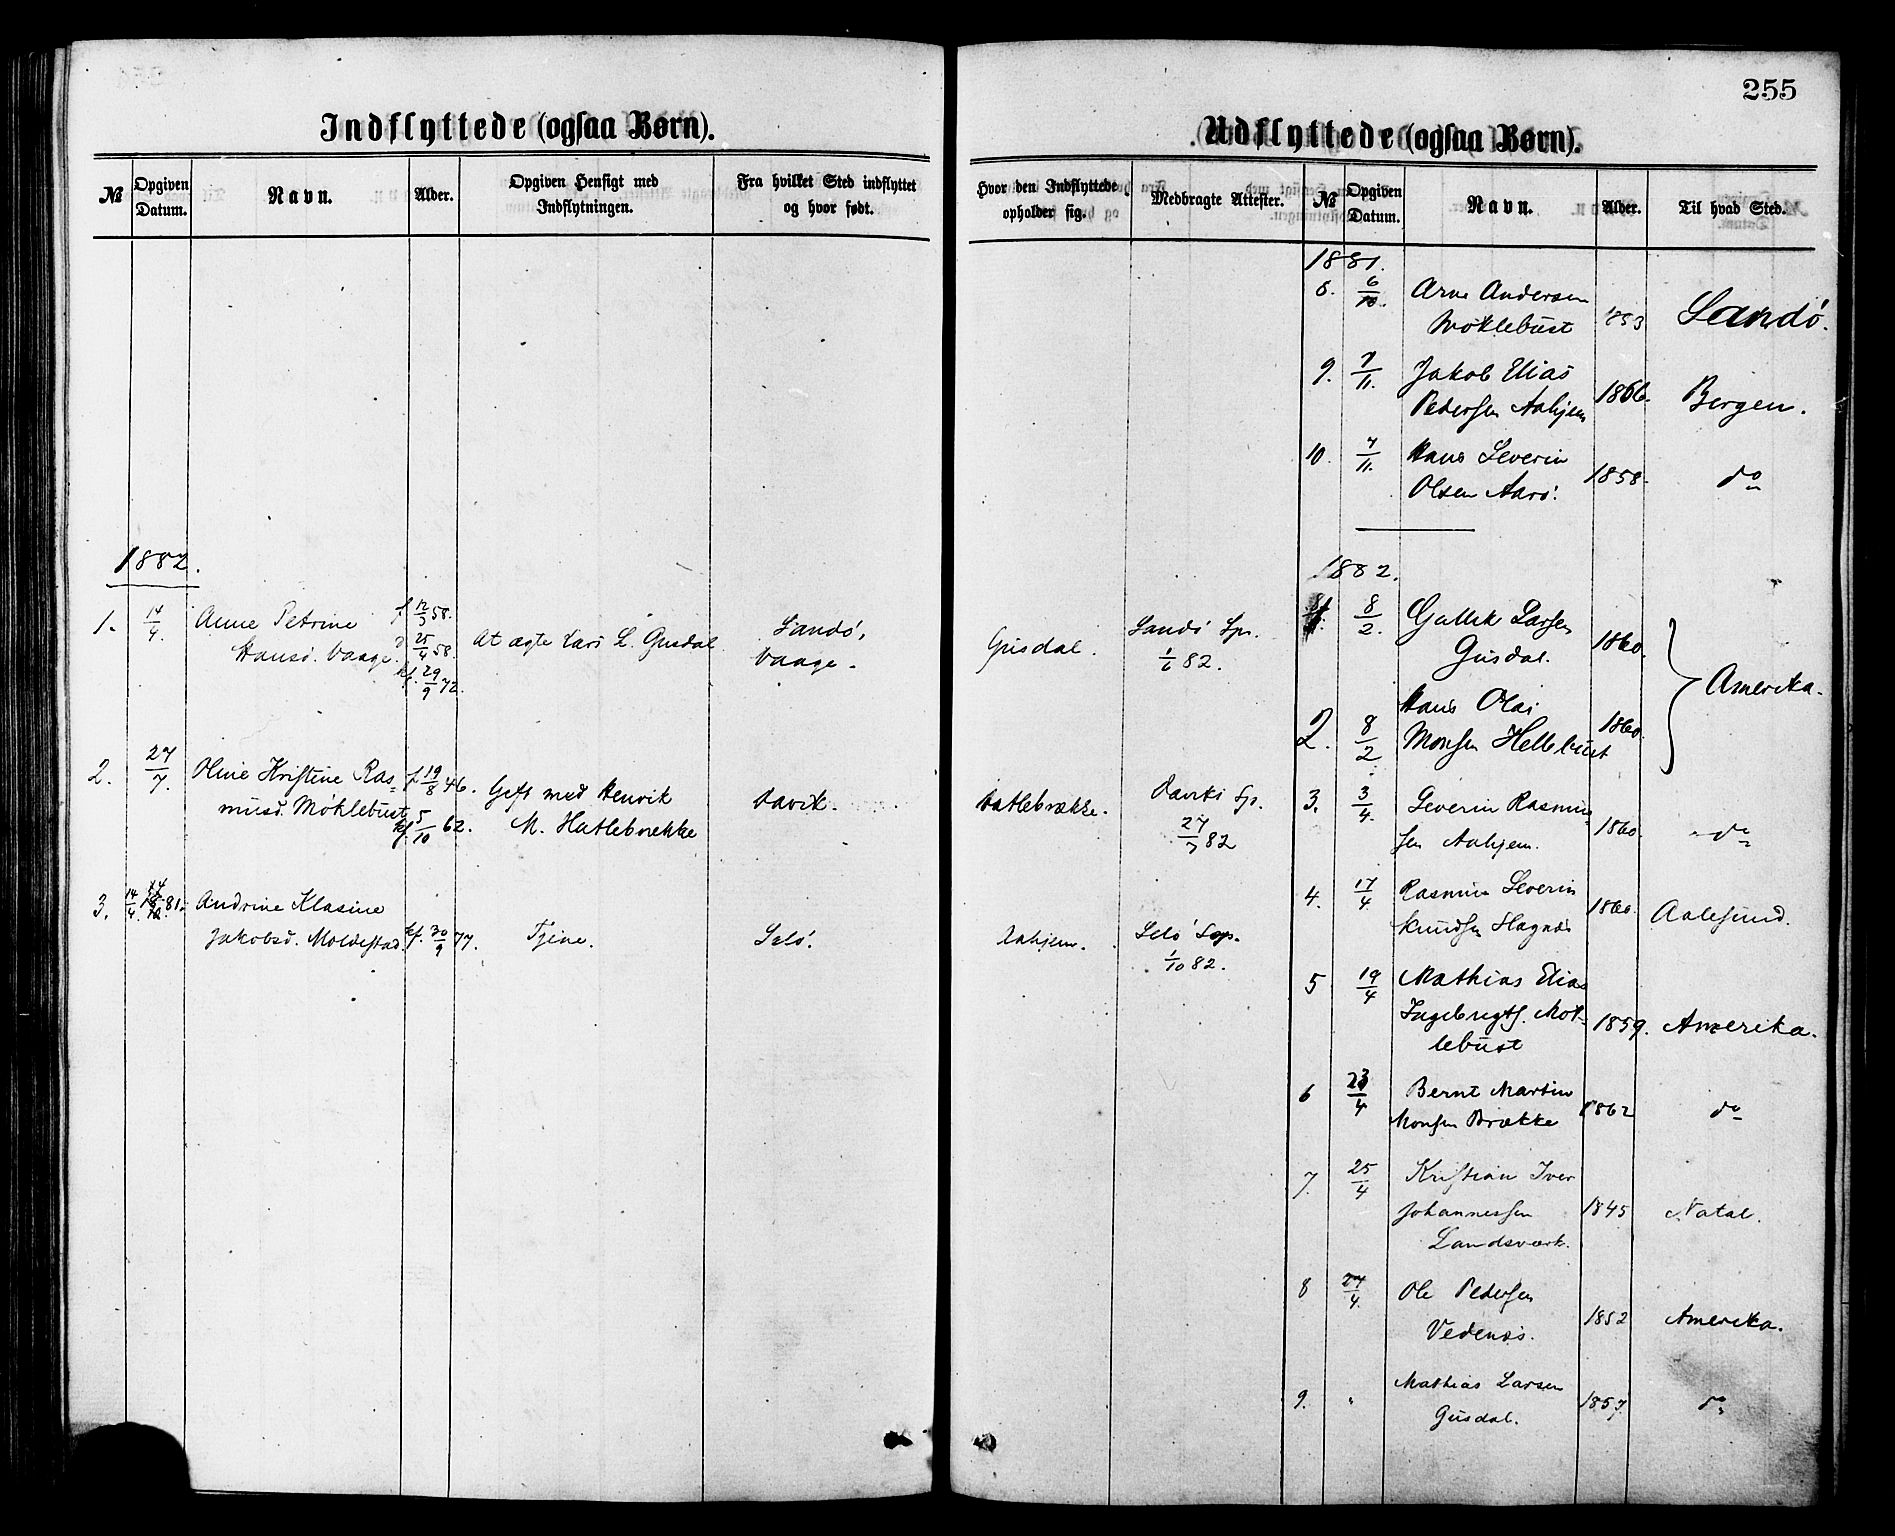 255
Indflyttede (ogsaa Børn).
№
Opgiven Datum.
Navn.
Alder.
Opgiven Hensigt med Indflytningen.
Fra hvilket Sted indflyttet og hvor født.
Hvor den Indflyttede opholder sig.
Medbragte Attester.
1882.
1. 14/4. Anne Petrine f. 12/3 58. Sandø, Sandø Sp.
Hansd. Vaage. d 25/4 58. At ægte Lars L. Gusdal Vaage. Gusdal. 1/6 82.
kf. 29/9 72.
2. 27/7. Oline Kristine Ras= f 19/8 46. Gift med Henrik Davik. Hatlebrække. Daviks Sp.
musd. Møklebust kf. 5/10 62. M. Hatlebrekke 27/7 82
3. 14/4. 81. Andrine Klasine
Jakobsd. Moldestad. kf. 30/9 77. Tjene. Selø. Aahjem. Selø Sop.
1/10 82.
Udflyttede (ogsaa Børn).
№
Opgiven Datum.
Navn.
Alder.
Til hvad Sted.
1881.
8. 6/10. Arne Andersen
Møklebust 1853 Sandø.
9. 7/11. Jakob Elias
Pedersen Aahjem 1866. Bergen.
10. 7/11. Hans Severin
Olsen Aarø. 1858. do
1882.
8/2. Gullik Larsen
Gusdal. 1860.
Amerika.
2. 8/2 Hans Olai
Monsen Hellebust 1860.
3. 3/4. Severin Rasmus=
sen Aahjem. 1860. do
4. 17/4. Rasmus Severin
Knudsen Hagnæs 1860. Aalesund.
5 19/4 Mathias Elias
Ingebrigts. Møk=
lebust 1859. Amerika.
6 23/4 Bernt Martin
Monsen Brække 1862 do
7. 25/4 Kristian Iver
Johannessen 1845 Natal.
Landsværk.
8 27/4. Ole Pedersen
Vedenæs. 1852 Amerika.
9. " Mathias Larsen
Gusdal. 1857. do